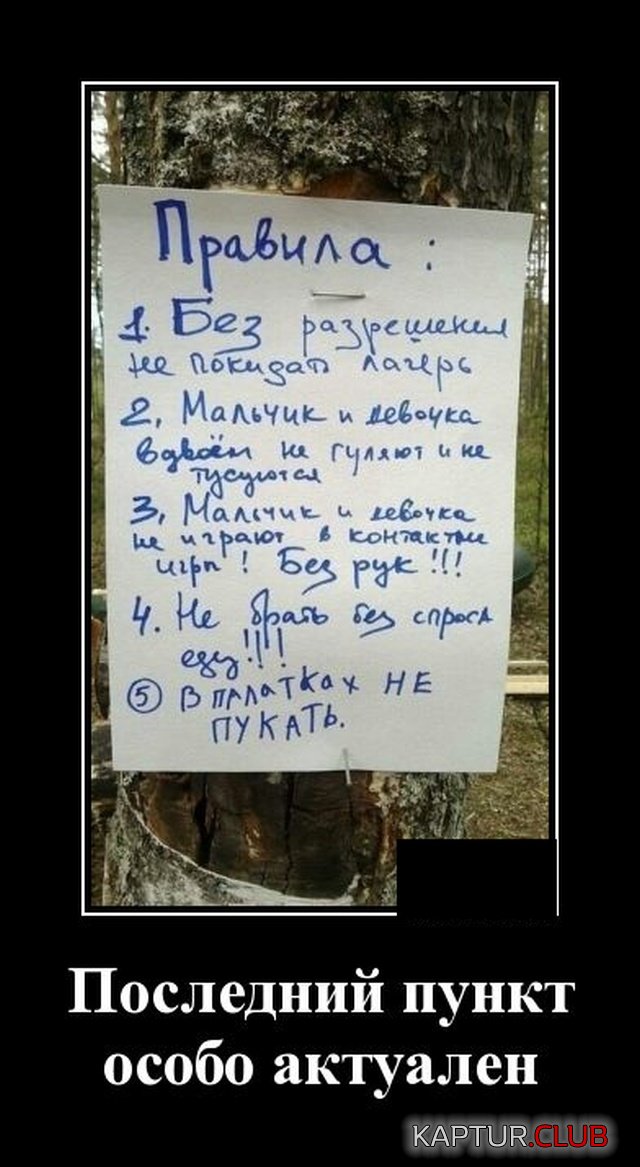 Правила :
1. Без разрешения
не покидать лагерь
2, Мальчик и девочка
вдвоём не гуляют и не
тусуются
3, Мальчик и девочка
не играют в контактные
игры ! Без рук !!!
4. Не брать без спроса
еду!!!!
5 В ПАЛАТКАХ НЕ
ПУКАТЬ.
Последний пункт
особо актуален
KAPTUR.CLUB